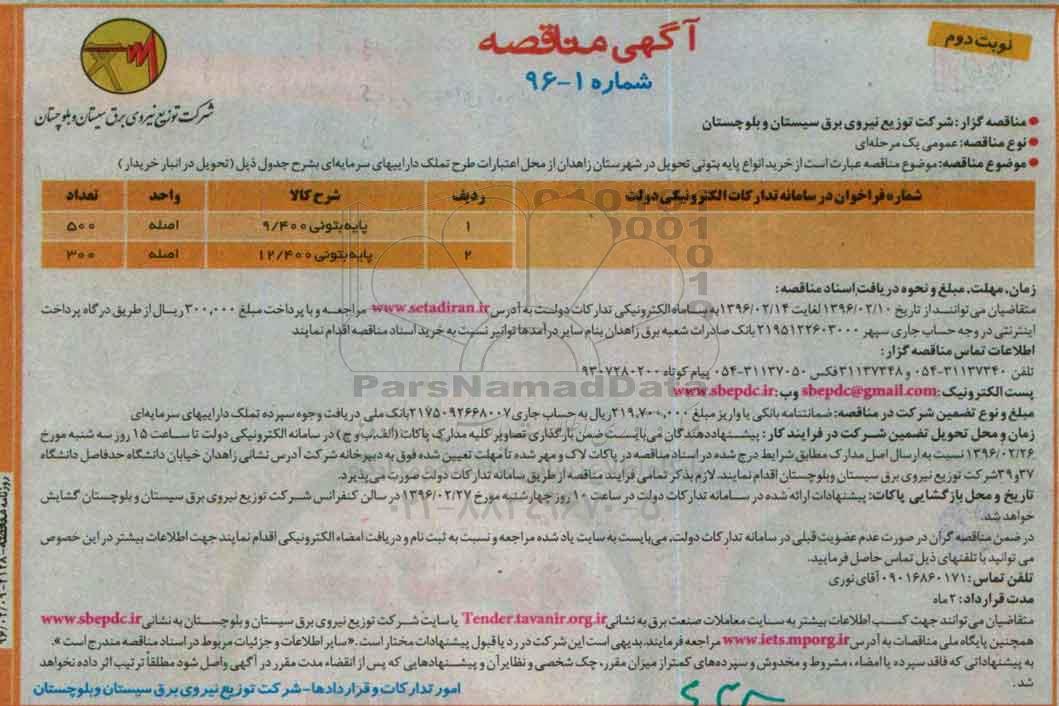 نوبت دوم
آگهی مناقصه
شماره ۱-۹۶
شرکت توزیع نیروی برق سیستان و بلوچستان
● مناقصه گزار: شرکت توزیع نیروی برق سیستان و بلوچستان
● نوع مناقصه: عمومی یک مرحله‌ای
● موضوع مناقصه: موضوع مناقصه عبارت است از خرید انواع پایه بتونی تحویل در شهرستان زاهدان از محل اعتبارات طرح تملک داراییهای سرمایه‌ای بشرح جدول ذیل (تحویل در انبار خریدار)
شماره فراخوان در سامانه تدارکات الکترونیکی دولت ردیف شرح کالا واحد تعداد
۱ پایه بتونی ۹/۴۰۰ اصله ۵۰۰
۲ پایه بتونی ۱۲/۴۰۰ اصله ۳۰۰
زمان، مهلت، مبلغ و نحوه دریافت اسناد مناقصه:
متقاضیان می توانند از تاریخ ۱۳۹۶/۰۲/۱۰ لغایت ۱۳۹۶/۰۲/۱۴ به سامانه الکترونیکی تدارکات دولت به آدرس www.setadiran.ir مراجعه و با پرداخت مبلغ ۳۰۰,۰۰۰ ریال از طریق درگاه پرداخت
اینترنتی در وجه حساب جاری سپهر ۲۱۹۵۱۲۲۶۰۳۰۰۰ بانک صادرات شعبه برق زاهدان بنام سایر درآمدها توانیر نسبت به خرید اسناد مناقصه اقدام نمایند
اطلاعات تماس مناقصه گزار:
تلفن ۳۱۱۳۷۳۴۰-۰۵۴ و ۳۱۱۳۷۳۴۸ فکس ۳۱۱۳۷۰۵۰-۰۵۴ پیام کوتاه ۹۳۰۷۲۸۰۲۰۰
پست الکترونیک: sbepdc@gmail.com وب: www.sbepdc.ir
مبلغ و نوع تضمین شرکت در مناقصه: ضمانتنامه بانکی یا واریز مبلغ ۲۱۹,۷۰۰,۰۰۰ ریال به حساب جاری ۲۱۷۵۰۹۲۶۶۸۰۰۷ بانک ملی دریافت وجوه سپرده تملک داراییهای سرمایه‌ای
زمان و محل تحویل تضمین شرکت در فرایند کار: پیشنهاددهندگان می‌بایست ضمن بارگذاری تصاویر کلیه مدارک پاکات (الف، ب و ج) در سامانه الکترونیکی دولت تا ساعت ۱۵ روز سه شنبه مورخ
۱۳۹۶/۰۲/۲۶ نسبت به ارسال اصل مدارک مطابق شرایط درج شده در اسناد مناقصه در پاکات لاک و مهر شده تا مهلت تعیین شده فوق به دبیرخانه شرکت آدرس نشانی زاهدان خیابان دانشگاه حدفاصل دانشگاه
۳۷ و ۳۹ شرکت توزیع نیروی برق سیستان وبلوچستان اقدام نمایند. لازم بذکر تمامی فرایند مناقصه از طریق سامانه تدارکات دولت صورت می پذیرد.
تاریخ و محل بازگشایی پاکات: پیشنهادات ارائه شده در سامانه تدارکات دولت در ساعت ۱۰ روز چهارشنبه مورخ ۱۳۹۶/۰۲/۲۷ در سالن کنفرانس شرکت توزیع نیروی برق سیستان و بلوچستان گشایش
خواهد شد.
در ضمن مناقصه گران در صورت عدم عضویت قبلی در سامانه تدارکات دولت، می‌بایست به سایت یاد شده مراجعه و نسبت به ثبت نام و دریافت امضاء الکترونیکی اقدام نمایند جهت اطلاعات بیشتر در این خصوص
می توانید با تلفنهای ذیل تماس حاصل فرمایید.
تلفن تماس: ۰۹۰۱۶۸۶۰۱۷۱ آقای نوری
مدت قرارداد: ۲ ماه
متقاضیان می توانند جهت کسب اطلاعات بیشتر به سایت معاملات صنعت برق به نشانی Tender.tavanir.org.ir یا سایت شرکت توزیع نیروی برق سیستان و بلوچستان به نشانی www.sbepdc.ir
همچنین پایگاه ملی مناقصات به آدرس www.iets.mporg.ir مراجعه فرمایند. بدیهی است این شرکت در رد یا قبول پیشنهادات مختار است. «سایر اطلاعات و جزئیات مربوط در اسناد مناقصه مندرج است».
به پیشنهاداتی که فاقد سپرده یا امضاء، مشروط و مخدوش و سپرده‌های کمتر از میزان مقرر، چک شخصی و نظایر آن و پیشنهادهایی که پس از انقضاء مدت مقرر در آگهی واصل شود مطلقاً ترتیب اثر داده نخواهد
شد.
امور تدارکات و قراردادها - شرکت توزیع نیروی برق سیستان وبلوچستان
ParsNamadData
۰۲۱-۸۸۳۴۹۶۷۰-۵